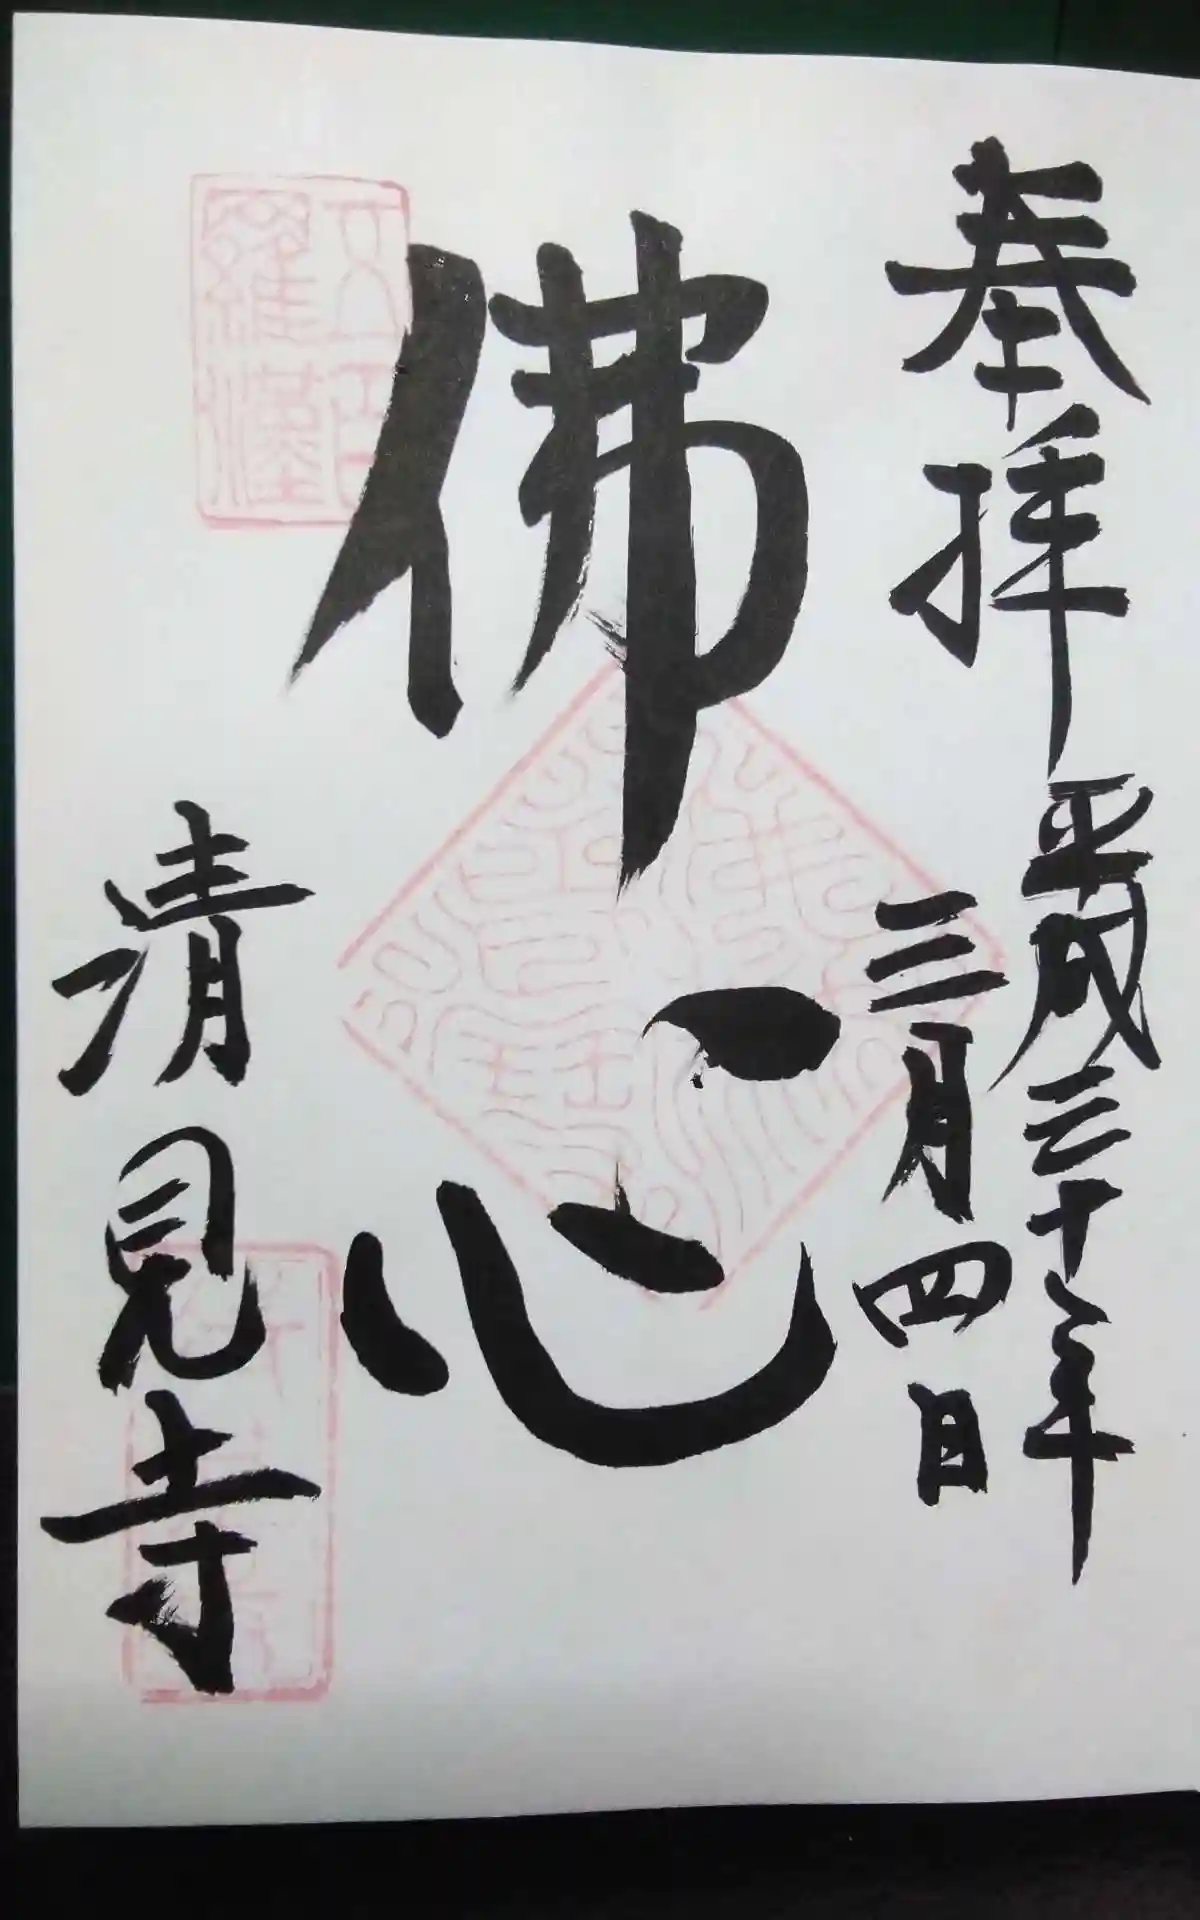 奉拝
平成三十年
三月四日
佛心
五百
羅漢
清見寺